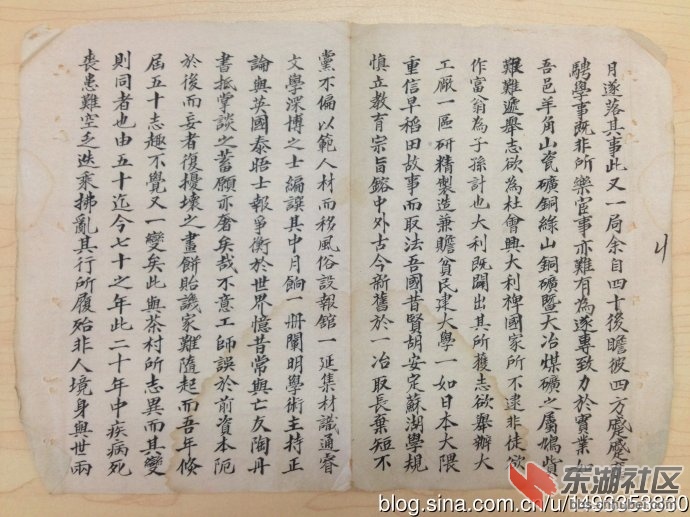 月遂落其事此又一局余自四十後瞻彼四方蹙蹙
騁學事既非所樂宦事亦難有為遂專致力於實業
吾邑羊角山瓷礦銅綠山銅礦暨大冶煤礦之屬鳩貲
艱難遞舉志欲為社會興大利裨國家所不逮非徒欲
作富翁為子孫計也大利既開出其所獲志欲舉辦大
工厰一區研精製造兼贍貧民建大學一如日本大隈
重信早稻田故事而取法吾國昔賢胡安定蘇湖學規
慎立教育宗旨鎔中外古今新舊於一冶取長棄短不
黨不偏以範人材而移風俗設報館一延集材識通睿
文學深博之士編譔其中月餉一冊闡明學術主持正
論與英國泰晤士報爭衡於世界憶昔常與亡友陶丹
書抵掌談之蓄願亦奢矣哉不意工師誤於前資本阨
於後而妄者復擾壞之畫餅貽譏家難隨起而吾年條
屆五十志趣不覺又一變矣此與茶村所志異而其變
則同者也由五十迄今七十之年此二十年中疾病死
喪患難空乏迭乘拂亂其行所履殆非人境身與世兩
东湖社区
blog.sina.com.cn/u/1496353830